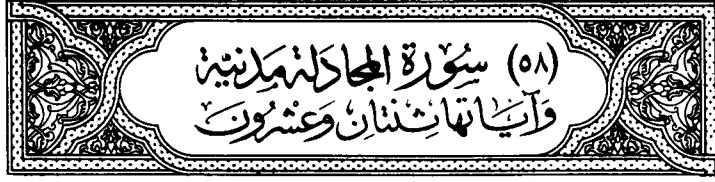 (٥٨) سُورَة المجَادَلة مَدَنيّة
وَآيَاتهَا ثِنتَانِ وَعشْرُونَ